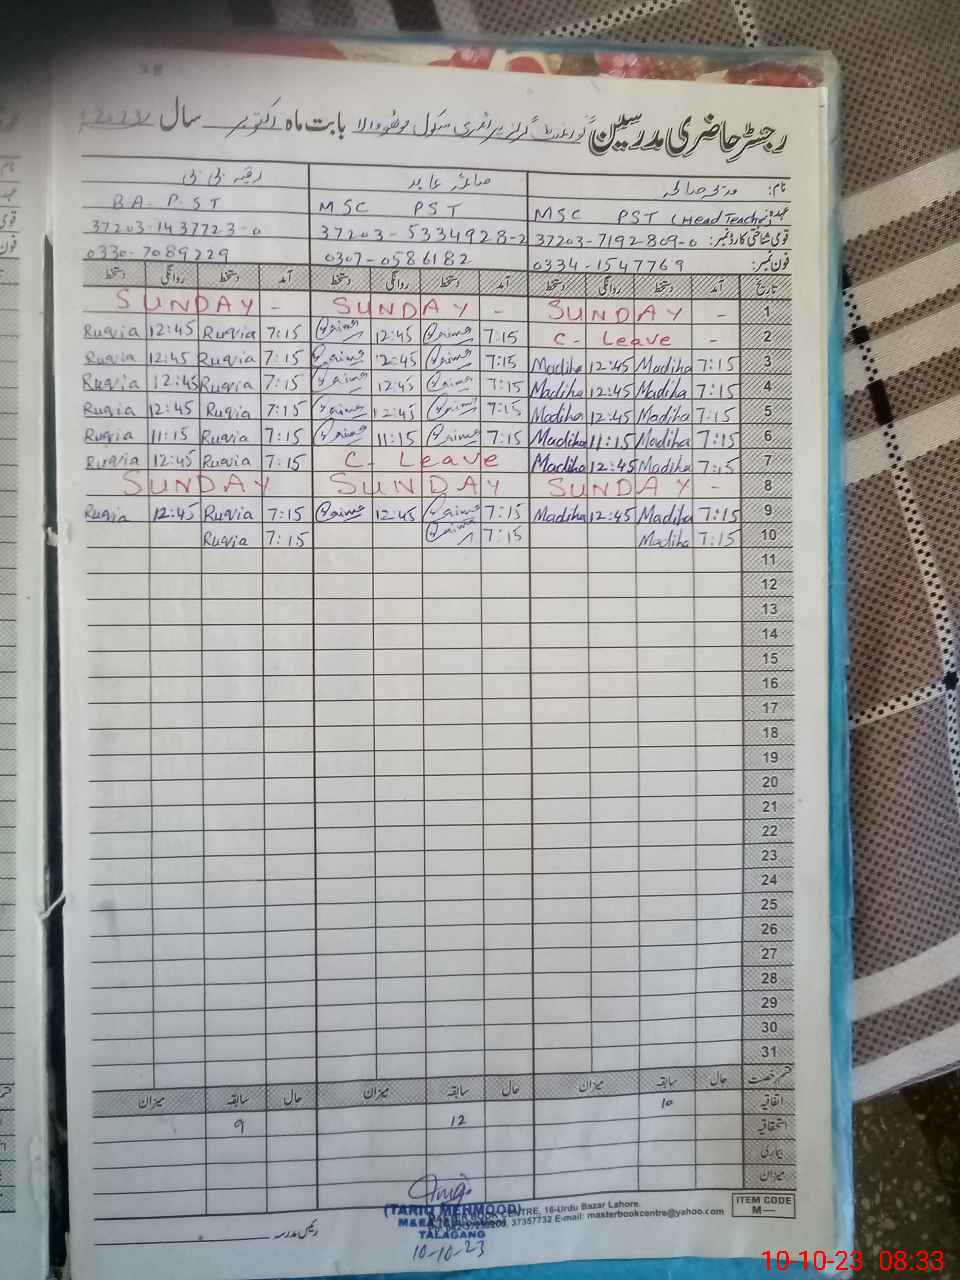 رجسٹر حاضری مدرسین گورنمنٹ گرلز پرائمری سکول بابت ماہ اکتوبر سال 2023
نام: مدیحہ صالحہ صائمہ عابد رقیہ بی بی
عہدہ: MSC PST (Head Teacher) MSC PST BA. P.ST
قومی شناختی کارڈ نمبر: 37203-7192809-0 37203-5334928-2 37203-1437723-0
فون نمبر: 0334-1547769 0307-0586182 0330-7089229
تاریخ آمد دستخط روانگی دستخط آمد دستخط روانگی دستخط آمد دستخط روانگی دستخط
1 - SUNDAY - SUNDAY - SUNDAY
2 - C- Leave 7:15 Saima 12:45 Saima 7:15 Ruqvia 12:45 Ruqvia
3 7:15 Madiha 12:45 Madiha 7:15 Saima 12:45 Saima 7:15 Ruqvia 12:45 Ruqvia
4 7:15 Madiha 12:45 Madiha 7:15 Saima 12:45 Saima 7:15 Ruqvia 12:45 Ruqvia
5 7:15 Madiha 12:45 Madiha 7:15 Saima 12:45 Saima 7:15 Ruqvia 12:45 Ruqvia
6 7:15 Madiha 11:15 Madiha 7:15 Saima 11:15 Saima 7:15 Ruqvia 11:15 Ruqvia
7 7:15 Madiha 12:45 Madiha C- Leave 7:15 Ruqvia 12:45 Ruqvia
8 - SUNDAY SUNDAY SUNDAY
9 7:15 Madiha 12:45 Madiha 7:15 Saima 12:45 Saima 7:15 Ruqvia 12:45 Ruqvia
10 7:15 Madiha 7:15 Saima 7:15 Ruqvia
11
12
13
14
15
16
17
18
19
20
21
22
23
24
25
26
27
28
29
30
31
قسم رخصت حال سابقہ میزان حال سابقہ میزان حال سابقہ میزان
اتفاقیہ 10 12 9
استحقاقیہ
بیماری
میزان
ITEM CODE
M—
BOOK CENTRE, 16-Urdu Bazar Lahore.
37357732 E-mail: masterbookcentre@yahoo.com
(TARIQ MEHMOOD)
TALAGANG
10-10-23
رئیس مدرسہ
10-10-23 08:33